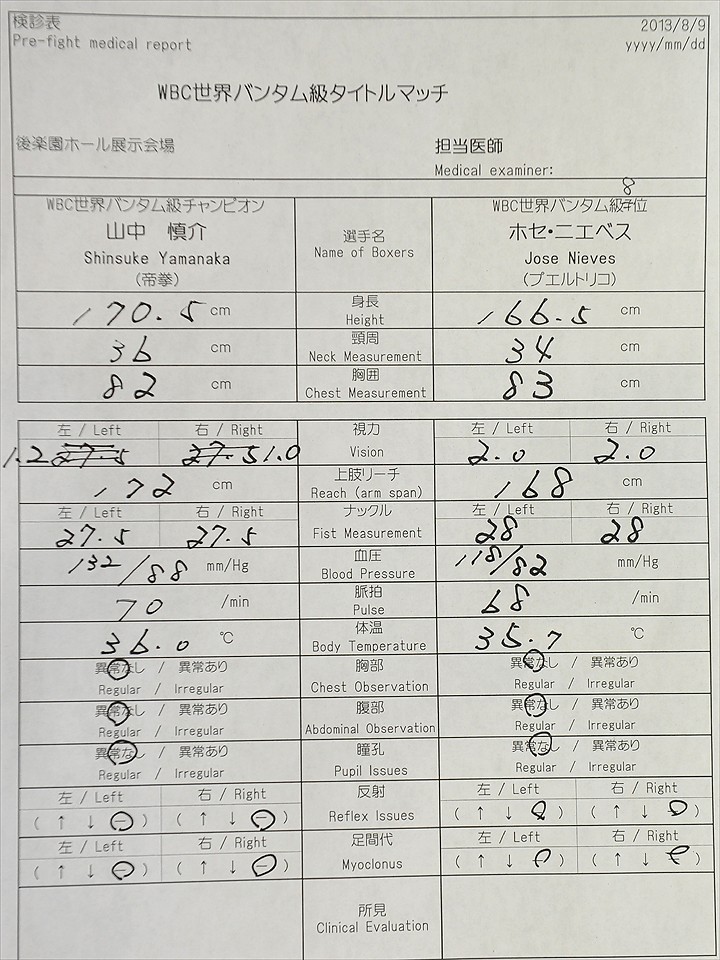 検診表 2013/8/9
Pre-fight medical report yyyy/mm/dd
WBC世界バンタム級タイトルマッチ
後楽園ホール展示会場 担当医師
Medical examiner:
8
WBC世界バンタム級チャンピオン 選手名 WBC世界バンタム級 位
山中 慎介 Name of Boxers ホセ・ニエベス
Shinsuke Yamanaka Jose Nieves
(帝拳) (プエルトリコ)
170.5 cm 身長 166.5 cm
Height
36 cm 頸周 34 cm
Neck Measurement
82 cm 胸囲 83 cm
Chest Measurement
左 / Left 右 / Right 視力 左 / Left 右 / Right
1.2 27.5 27.5 1.0 Vision 2.0 2.0
172 cm 上肢リーチ 168 cm
Reach (arm span)
左 / Left 右 / Right ナックル 左 / Left 右 / Right
27.5 27.5 Fist Measurement 28 28
132/88 mm/Hg 血圧 118/82 mm/Hg
Blood Pressure
70 /min 脈拍 68 /min
Pulse
36.0 ℃ 体温 35.7 ℃
Body Temperature
異常なし / 異常あり 胸部 異常なし / 異常あり
Regular / Irregular Chest Observation Regular / Irregular
異常なし / 異常あり 腹部 異常なし / 異常あり
Regular / Irregular Abdominal Observation Regular / Irregular
異常なし / 異常あり 瞳孔 異常なし / 異常あり
Regular / Irregular Pupil Issues Regular / Irregular
左 / Left 右 / Right 反射 左 / Left 右 / Right
( ↑ ↓ − ) ( ↑ ↓ − ) Reflex Issues ( ↑ ↓ − ) ( ↑ ↓ − )
左 / Left 右 / Right 足間代 左 / Left 右 / Right
( ↑ ↓ − ) ( ↑ ↓ − ) Myoclonus ( ↑ ↓ − ) ( ↑ ↓ − )
所見
Clinical Evaluation